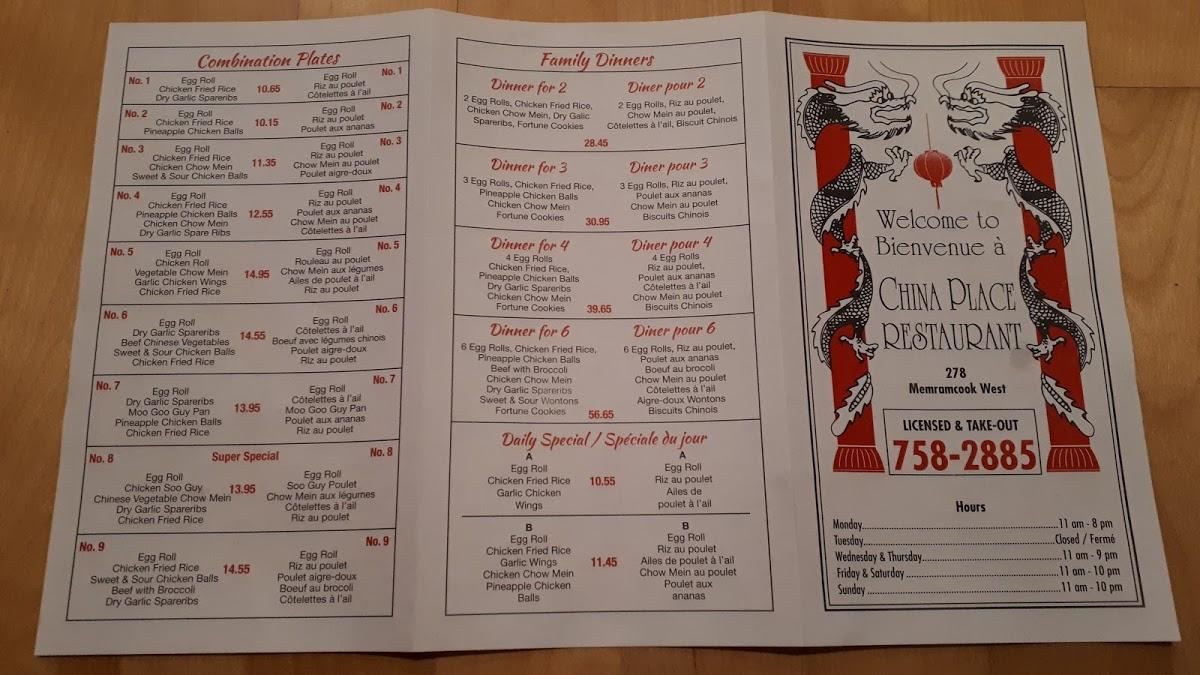 Combination Plates
No. 1
Egg Roll
Chicken Fried Rice
Dry Garlic Spareribs
10.65
No. 1
Egg Roll
Riz au poulet
Côtelettes à l'ail
No. 2
Egg Roll
Chicken Fried Rice
Pineapple Chicken Balls
10.15
No. 2
Egg Roll
Riz au poulet
Poulet aux ananas
No. 3
Egg Roll
Chicken Fried Rice
Chicken Chow Mein
Sweet & Sour Chicken Balls
11.35
No. 3
Egg Roll
Riz au poulet
Chow Mein au poulet
Poulet aigre-doux
No. 4
Egg Roll
Chicken Fried Rice
Pineapple Chicken Balls
Chicken Chow Mein
Dry Garlic Spare Ribs
12.55
No. 4
Egg Roll
Riz au poulet
Poulet aux ananas
Chow Mein au poulet
Côtelettes à l'ail
No. 5
Egg Roll
Chicken Roll
Vegetable Chow Mein
Garlic Chicken Wings
Chicken Fried Rice
14.95
No. 5
Egg Roll
Rouleau au poulet
Chow Mein aux légumes
Ailes de poulet à l'ail
Riz au poulet
No. 6
Egg Roll
Dry Garlic Spareribs
Beef Chinese Vegetables
Sweet & Sour Chicken Balls
Chicken Fried Rice
14.55
No. 6
Egg Roll
Côtelettes à l'ail
Boeuf avec légumes chinois
Poulet aigre-doux
Riz au poulet
No. 7
Egg Roll
Dry Garlic Spareribs
Moo Goo Guy Pan
Pineapple Chicken Balls
Chicken Fried Rice
13.95
No. 7
Egg Roll
Côtelettes à l'ail
Moo Goo Guy Pan
Poulet aux ananas
Riz au poulet
No. 8
Super Special
Egg Roll
Chicken Soo Guy
Chinese Vegetable Chow Mein
Dry Garlic Spareribs
Chicken Fried Rice
13.95
No. 8
Egg Roll
Soo Guy Poulet
Chow Mein aux légumes
Côtelettes à l'ail
Riz au poulet
No. 9
Egg Roll
Chicken Fried Rice
Sweet & Sour Chicken Balls
Beef with Broccoli
Dry Garlic Spareribs
14.55
No. 9
Egg Roll
Riz au poulet
Poulet aigre-doux
Boeuf au brocoli
Côtelettes à l'ail
Family Dinners
Dinner for 2
2 Egg Rolls, Chicken Fried Rice,
Chicken Chow Mein, Dry Galic
Spareribs, Fortune Cookies
Dinner pour 2
2 Egg Rolls, Riz au poulet,
Chow Mein au poulet,
Côtelettes à l'ail, Biscuit Chinois
28.45
Dinner for 3
3 Egg Rolls, Chicken Fried Rice,
Pineapple Chicken Balls
Chicken Chow Mein
Fortune Cookies
Diner pour 3
3 Egg Rolls, Riz au poulet,
Poulet aux ananas
Chow Mein au poulet
Biscuits Chinois
30.95
Dinner for 4
4 Egg Rolls
Chicken Fried Rice,
Pineapple Chicken Balls
Dry Garlic Spareribs
Chicken Chow Mein
Fortune Cookies
39.65
Diner pour 4
4 Egg Rolls
Riz au poulet,
Poulet aux ananas
Côtelettes à l'ail
Chow Mein au poulet
Biscuits Chinois
Dinner for 6
6 Egg Rolls, Chicken Fried Rice,
Pineapple Chicken Balls
Beef with Broccoli
Chicken Chow Mein
Dry Garlic Spareribs
Sweet & Sour Wontons
Fortune Cookies
56.65
Diner pour 6
6 Egg Rolls, Riz au poulet,
Poulet aux ananas
Boeuf au brocoli
Chow Mein au poulet
Côtelettes à l'ail
Aigre-doux Wontons
Biscuits Chinois
Daily Special / Spéciale du jour
A
Egg Roll
Chicken Fried Rice
Garlic Chicken
Wings
10.55
A
Egg Roll
Riz au poulet
Ailes de
poulet à l'ail
B
Egg Roll
Chicken Fried Rice
Garlic Wings
Chicken Chow Mein
Pineapple Chicken
Balls
11.45
B
Egg Roll
Riz au poulet
Ailes de poulet à l'ail
Chow Mein au poulet
Poulet aux
ananas
Welcome to
Bienvenue à
CHINA PLACE
RESTAURANT
278
Memramcook West
LICENSED & TAKE-OUT
758-2885
Hours
Monday...11 am - 8 pm
Tuesday...Closed / Fermé
Wednesday & Thursday...11 am - 9 pm
Friday & Saturday...11 am - 10 pm
Sunday...11 am - 10 pm